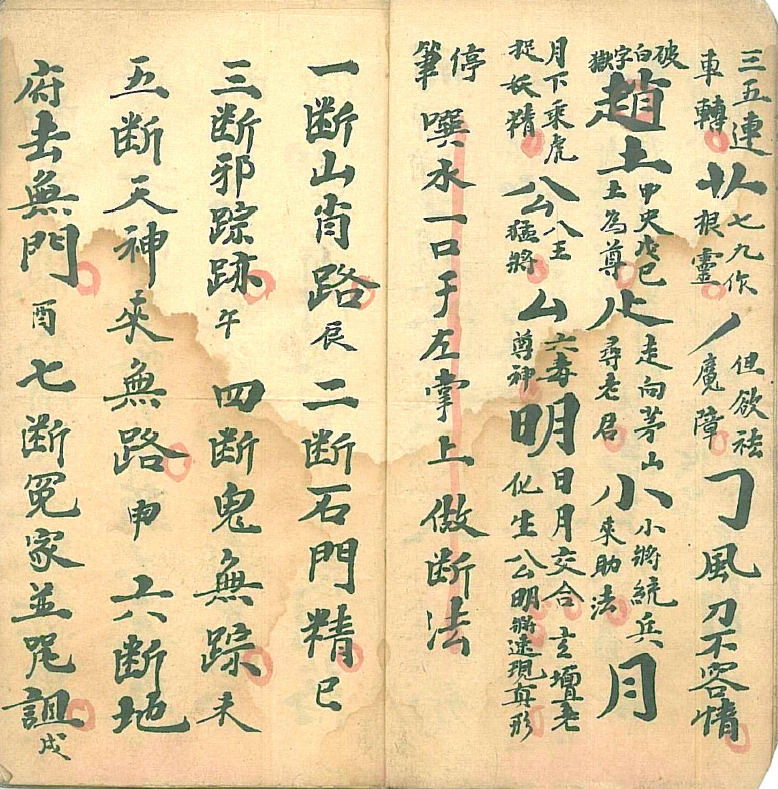 三五連車轉 𠀎 七九作根靈 丿 但欲祛魔障 𠃌 風刀不容情
破白字獄 趙 土 甲央戊己土為尊 止 走向茅山尋老君 小 小將統兵來助法 月
月下乘虎捉妖精 公 八王猛將 厶 六毒尊神 明 日月交合化生公明 玄壇老將速現真形
停筆 噀水一口于左掌上做断法
一断山肖路 辰 二断石門精 巳
三断邪踪跡 午 四断鬼無踪 未
五断天神來無路 申 六断地
府去無門 酉 七断冤家並咒詛 戌